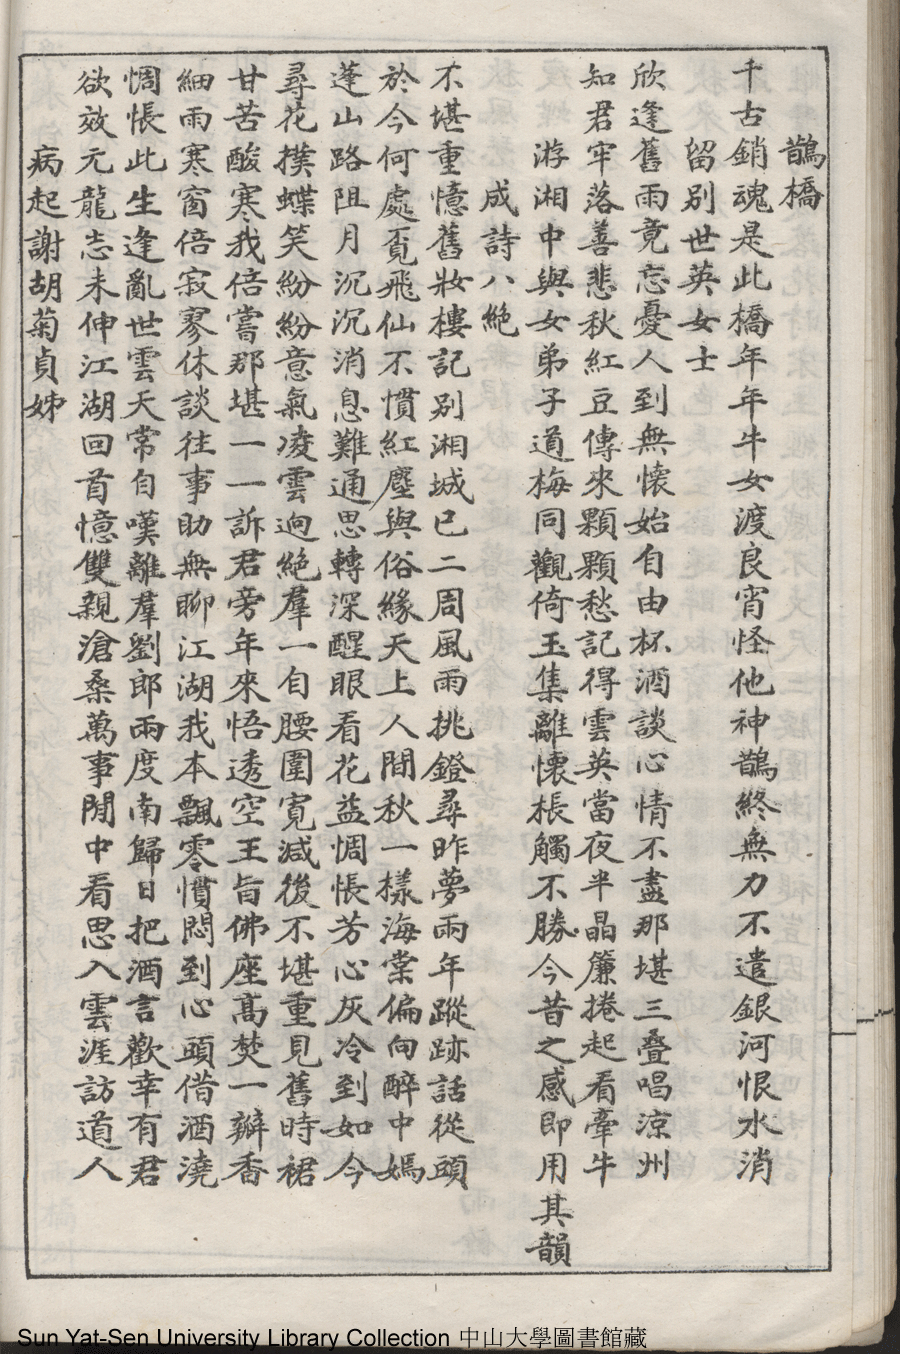 鵲橋
千古銷魂是此橋年年牛女渡良宵怪他神鵲終無力不遣銀河恨水消
留別世英女士
欣逢舊雨竟忘憂人到無懷始自由杯酒談心情不盡那堪三疊唱涼州
知君牢落善悲秋紅豆傳來顆顆愁記得雲英當夜半晶簾捲起看牽牛
游湘中與女弟子道梅同觀倚玉集離懷棖觸不勝今昔之感即用其韻
成詩八絶
不堪重憶舊妝樓記別湘城已二周風雨挑鐙尋昨夢兩年蹤跡話從頭
於今何處覔飛仙不慣紅塵與俗緣天上人間秋一樣海棠偏向醉中嫣
蓬山路阻月沉沉消息難通思轉深醒眼看花益惆悵芳心灰冷到如今
尋花撲蝶笑紛紛意氣凌雲迥絕羣一自腰圍寬減後不堪重見舊時裙
甘苦酸寒我倍嘗那堪一一訴君旁年來悟透空王旨佛座高焚一瓣香
細雨寒窗倍寂寥休談往事助無聊江湖我本飄零慣悶到心頭借酒澆
惆悵此生逢亂世雲天常自嘆離羣劉郎兩度南歸日把酒言歡幸有君
欲效元龍志未伸江湖回首憶雙親滄桑萬事閒中看思入雲涯訪道人
病起謝胡菊貞姊
Sun Yat-Sen University Library Collection 中山大學圖書館藏